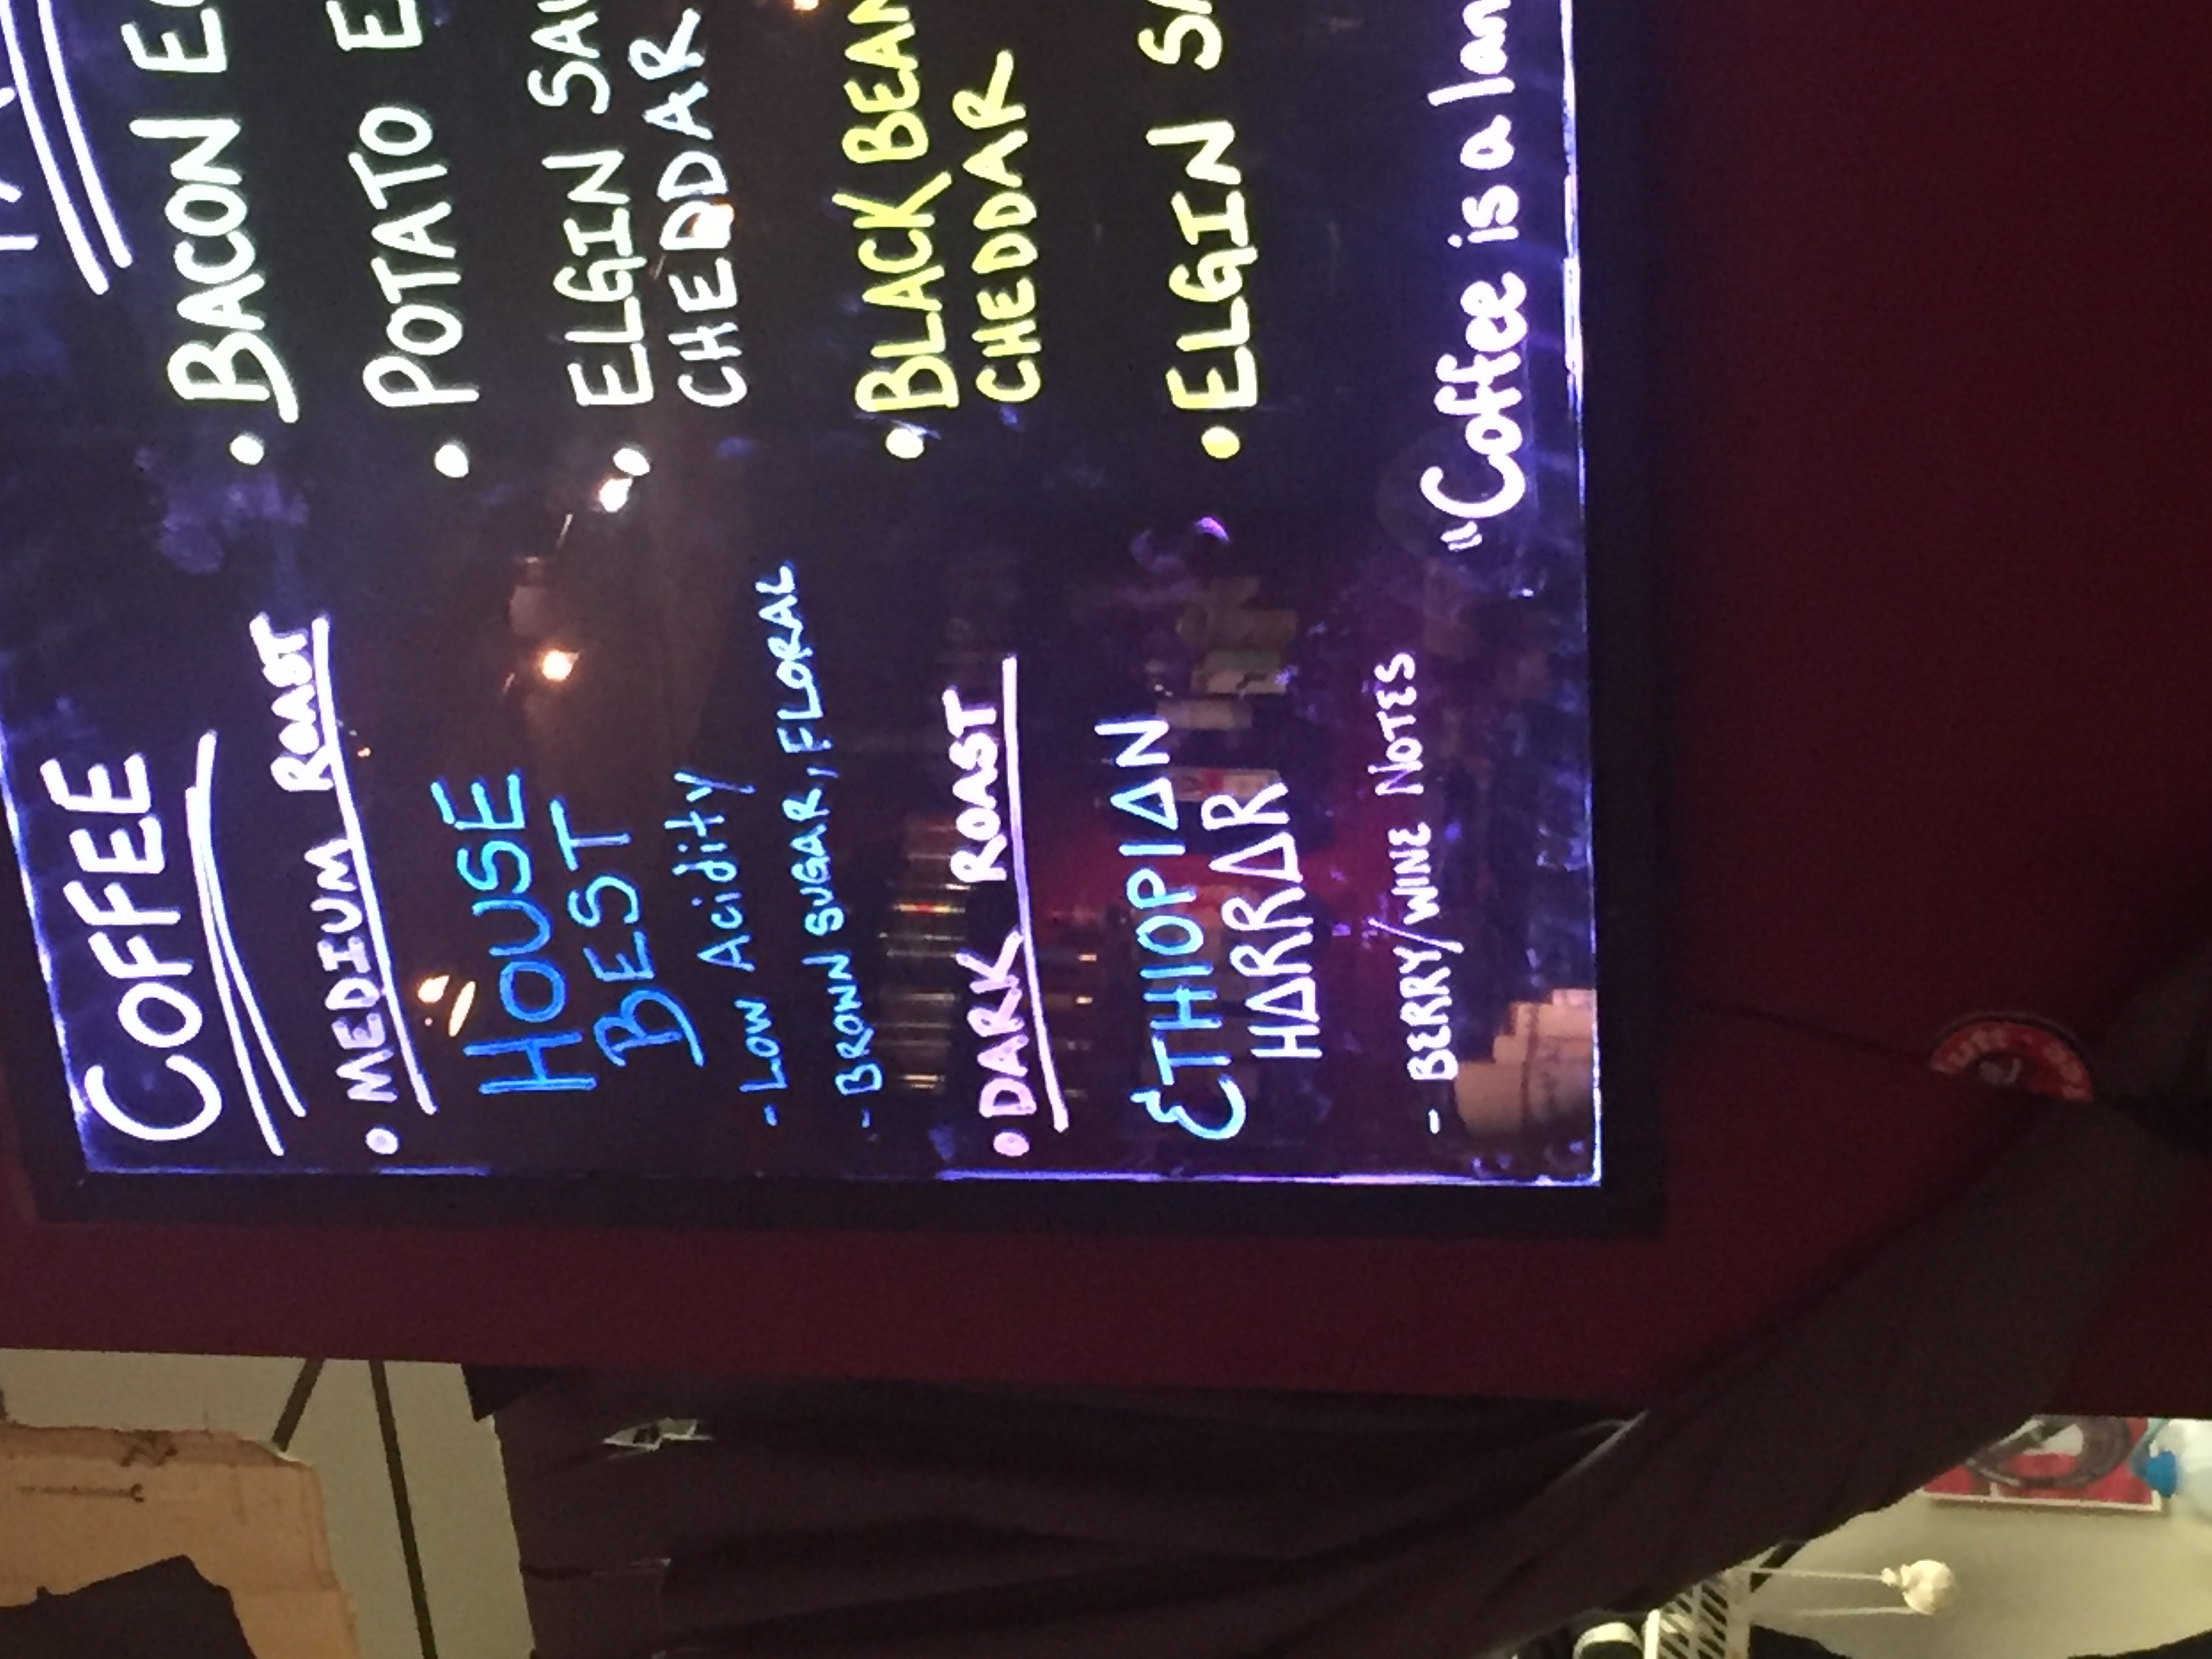 COFFEE
• MEDIUM ROAST
HOUSE
BEST
- Low Acidity
- BROWN SUGAR, FLORAL
• DARK ROAST
ETHIOPIAN
HARRAR
- BERRY/WINE NOTES
• BACON
• POTATO
• ELGIN
CHEDDAR
• BLACK BEAN
CHEDDAR
• ELGIN
"Coffee is a